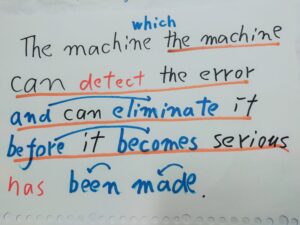 which
The machine the machine
can detect the error
and can eliminate it
before it becomes serious
has been made.